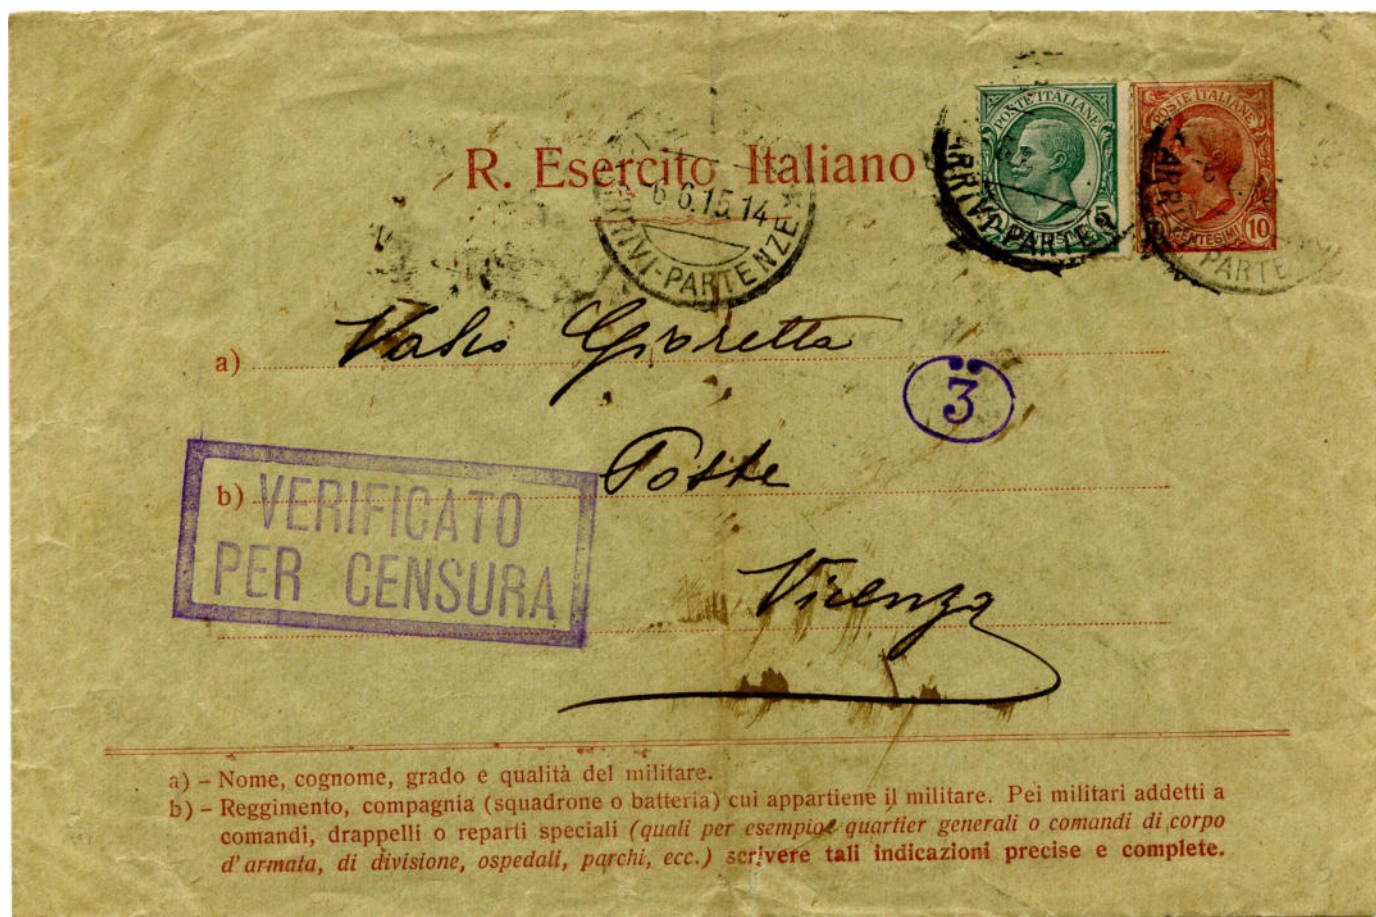 POSTE ITALIANE
POSTE ITALIANE
10
CENTESIMI
R. Esercito Italiano
6 6.15.14
ARRIVI-PARTENZE
ARRIVI-PARTE
ARRIVI PARTE
a)
Gioretta
3
b)
Poste
VERIFICATO
PER CENSURA
Vicenza
a) – Nome, cognome, grado e qualità del militare.
b) – Reggimento, compagnia (squadrone o batteria) cui appartiene il militare. Pei militari addetti a
comandi, drappelli o reparti speciali (quali per esempio: quartier generali o comandi di corpo
d'armata, di divisione, ospedali, parchi, ecc.) scrivere tali indicazioni precise e complete.